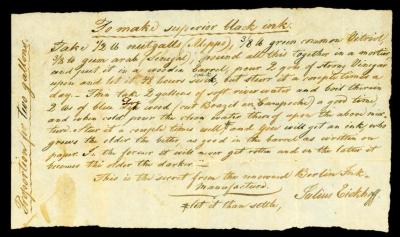 To make superior black ink.
Take 1/2 lb nutgalls (Aleppo), 3/8 lb green common Vitriol,
3/8 lb gum arab (Senegal), pound all this together in a mortar
and put it in a wooden barrel, pour 2 gals of strong Vinegar
upon and let it 24 hours soak, but sturr it a couple times a
day. Then take 2 gallons of soft riverwater and boil therein
2 lbs of blue Dye wood (cut Brazil or Campeche) a good time,
and when cold pour the clean water thereof upon the above mix-
ture. Stur it a couple times well ‡ and You will get an ink who
grows the older the better, as good in the barrel as written on
paper. In the former it will never get rotten and on the latter it
becomes the older the darker. —
This is the secret from the renowned Berlin Ink-
Manufacturer.
Julius Eickhoff.
‡ let it than settle,
Proportion for two gallons.